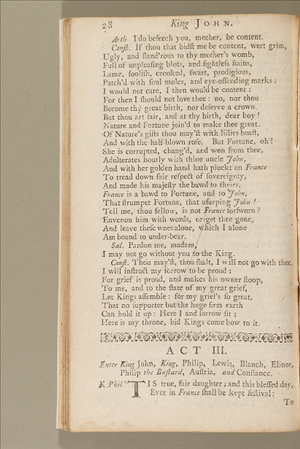 28 King JOHN.
Arth. I do beseech you, mother, be content.
Const. If thou that bidst me be content, wert grim,
Ugly, and sland'rous to thy mother's womb,
Full of unpleasing blots, and sightless stains,
Lame, foolish, crooked, swart, prodigious,
Patch'd with foul moles, and eye-offending marks;
I would not care, I then would be content:
For then I should not love thee: no, nor thou
Become thy great birth, nor deserve a crown.
But thou art fair, and at thy birth, dear boy!
Nature and Fortune join'd to make thee great.
Of Nature's gifts thou may'st with lillies boast,
And with the half-blown rose. But Fortune, oh!
She is corrupted, chang'd, and won from thee,
Adulterates hourly with thine uncle John,
And with her golden hand hath pluckt on France
To tread down fair respect of sovereignty,
And made his majesty the bawd to theirs.
France is a bawd to Fortune, and to John,
That strumpet Fortune, that usurping John!
Tell me, thou fellow, is not France forsworn?
Envenom him with words, or get thee gone,
And leave these woes alone, which I alone
Am bound to under-bear.
Sal. Pardon me, madam,
I may not go without you to the King.
Const. Thou may'st, thou shalt, I will not go with thee.
I will instruct my sorrow to be proud;
For grief is proud, and makes his owner stoop,
To me, and to the state of my great grief,
Let Kings assemble: for my grief's so great,
That no supporter but the huge firm earth
Can hold it up: Here I and sorrow sit;
Here is my throne, bid Kings come bow to it.
ACT III.
Enter King John, King, Philip, Lewis, Blanch, Elinor,
Philip the Bastard, Austria, and Constance.
K. Phil. 'TIS true, fair daughter; and this blessed day,
Ever in France shall be kept festival:
To